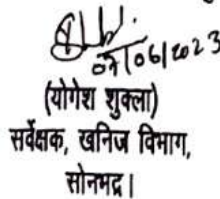 07/06/2023
(योगेश शुक्ला)
सर्वेक्षक, खनिज विभाग,
सोनभद्र।